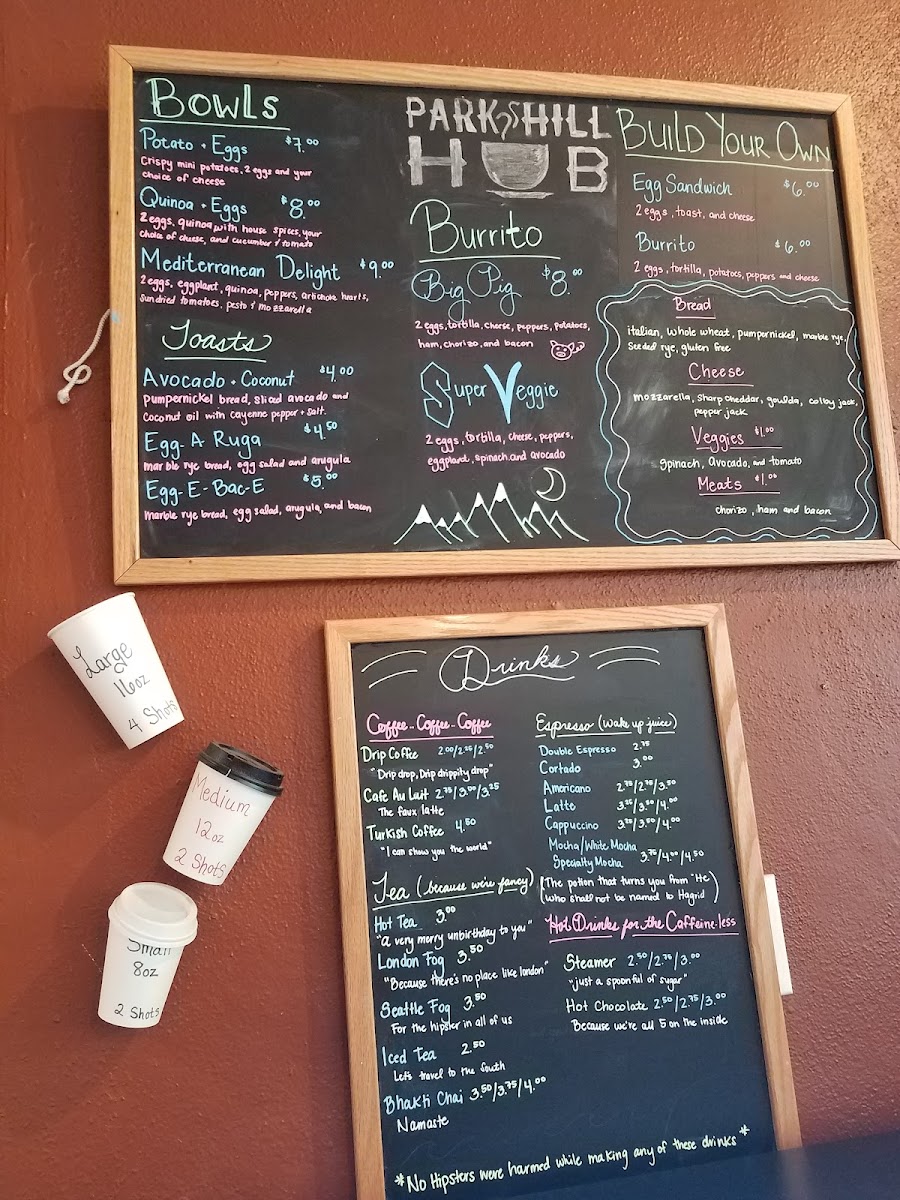 Bowls
Potato + Eggs $7.00
Crispy mini potatoes, 2 eggs and your
choice of cheese
Quinoa + Eggs $8.00
2 eggs, quinoa with house spices, your
choice of cheese, and cucumber + tomato
Mediterranean Delight $9.00
2 eggs, eggplant, quinoa, peppers, artichoke hearts,
sundried tomatoes, pesto + mozzarella
Toasts
Avocado + Coconut $4.00
pumpernickel bread, sliced avocado and
coconut oil with cayenne pepper + salt.
Egg-A Ruga $4.50
marble rye bread, egg salad and arugula
Egg-E-Bac-E $5.00
Marble rye bread, egg salad, arugula, and bacon
PARK HILL
HUB
Burrito
Big Pig $8.00
2 eggs, tortilla, cheese, peppers, potatoes,
ham, chorizo, and bacon
Super Veggie
2 eggs, tortilla, cheese, peppers,
eggplant, spinach and avocado
Build Your Own
Egg Sandwich $6.00
2 eggs, toast, and cheese
Burrito $6.00
2 eggs, tortilla, potatoes, peppers and cheese
Bread
italian, whole wheat, pumpernickel, marble rye,
Seeded rye, gluten free
Cheese
mozzarella, sharp cheddar, goulda, colby jack,
pepper jack
Veggies $1.00
spinach, avocado, and tomato
Meats $1.00
chorizo, ham and bacon
Large
16oz
4 Shots
Medium
12oz
2 Shots
Small
8oz
2 Shots
Drinks
Coffee-Coffee-Coffee
Drip Coffee 2.00/2.25/2.50
"Drip drop, Drip drippity drop"
Cafe Au Luit 2.75/3.00/3.25
The faux latte
Turkish Coffee 4.50
"I can show you the world"
Tea (because we're fancy)
Hot Tea 3.00
"a very merry unbirthday to you"
London Fog 3.50
"Because there's no place like london"
Seattle Fog 3.50
For the hipster in all of us
Iced Tea 2.50
Let's travel to the South
Bhakti Chai 3.50/3.75/4.00
Namaste
Espresso (wake up juice)
Double Espresso 2.75
Cortado 3.00
Americano 2.25/2.75/3.50
Latte 3.25/3.50/4.00
Cappuccino 3.25/3.50/4.00
Mocha/White Mocha
Specialty Mocha 3.75/4.00/4.50
(The potion that turns you from "He
who shall not be named to Hagrid)
Hot Drinks for the Caffeine-less
Steamer 2.50/2.75/3.00
"just a spoonful of sugar"
Hot Chocolate 2.50/2.75/3.00
Because we're all 5 on the inside
*No Hipsters were harmed while making any of these drinks*